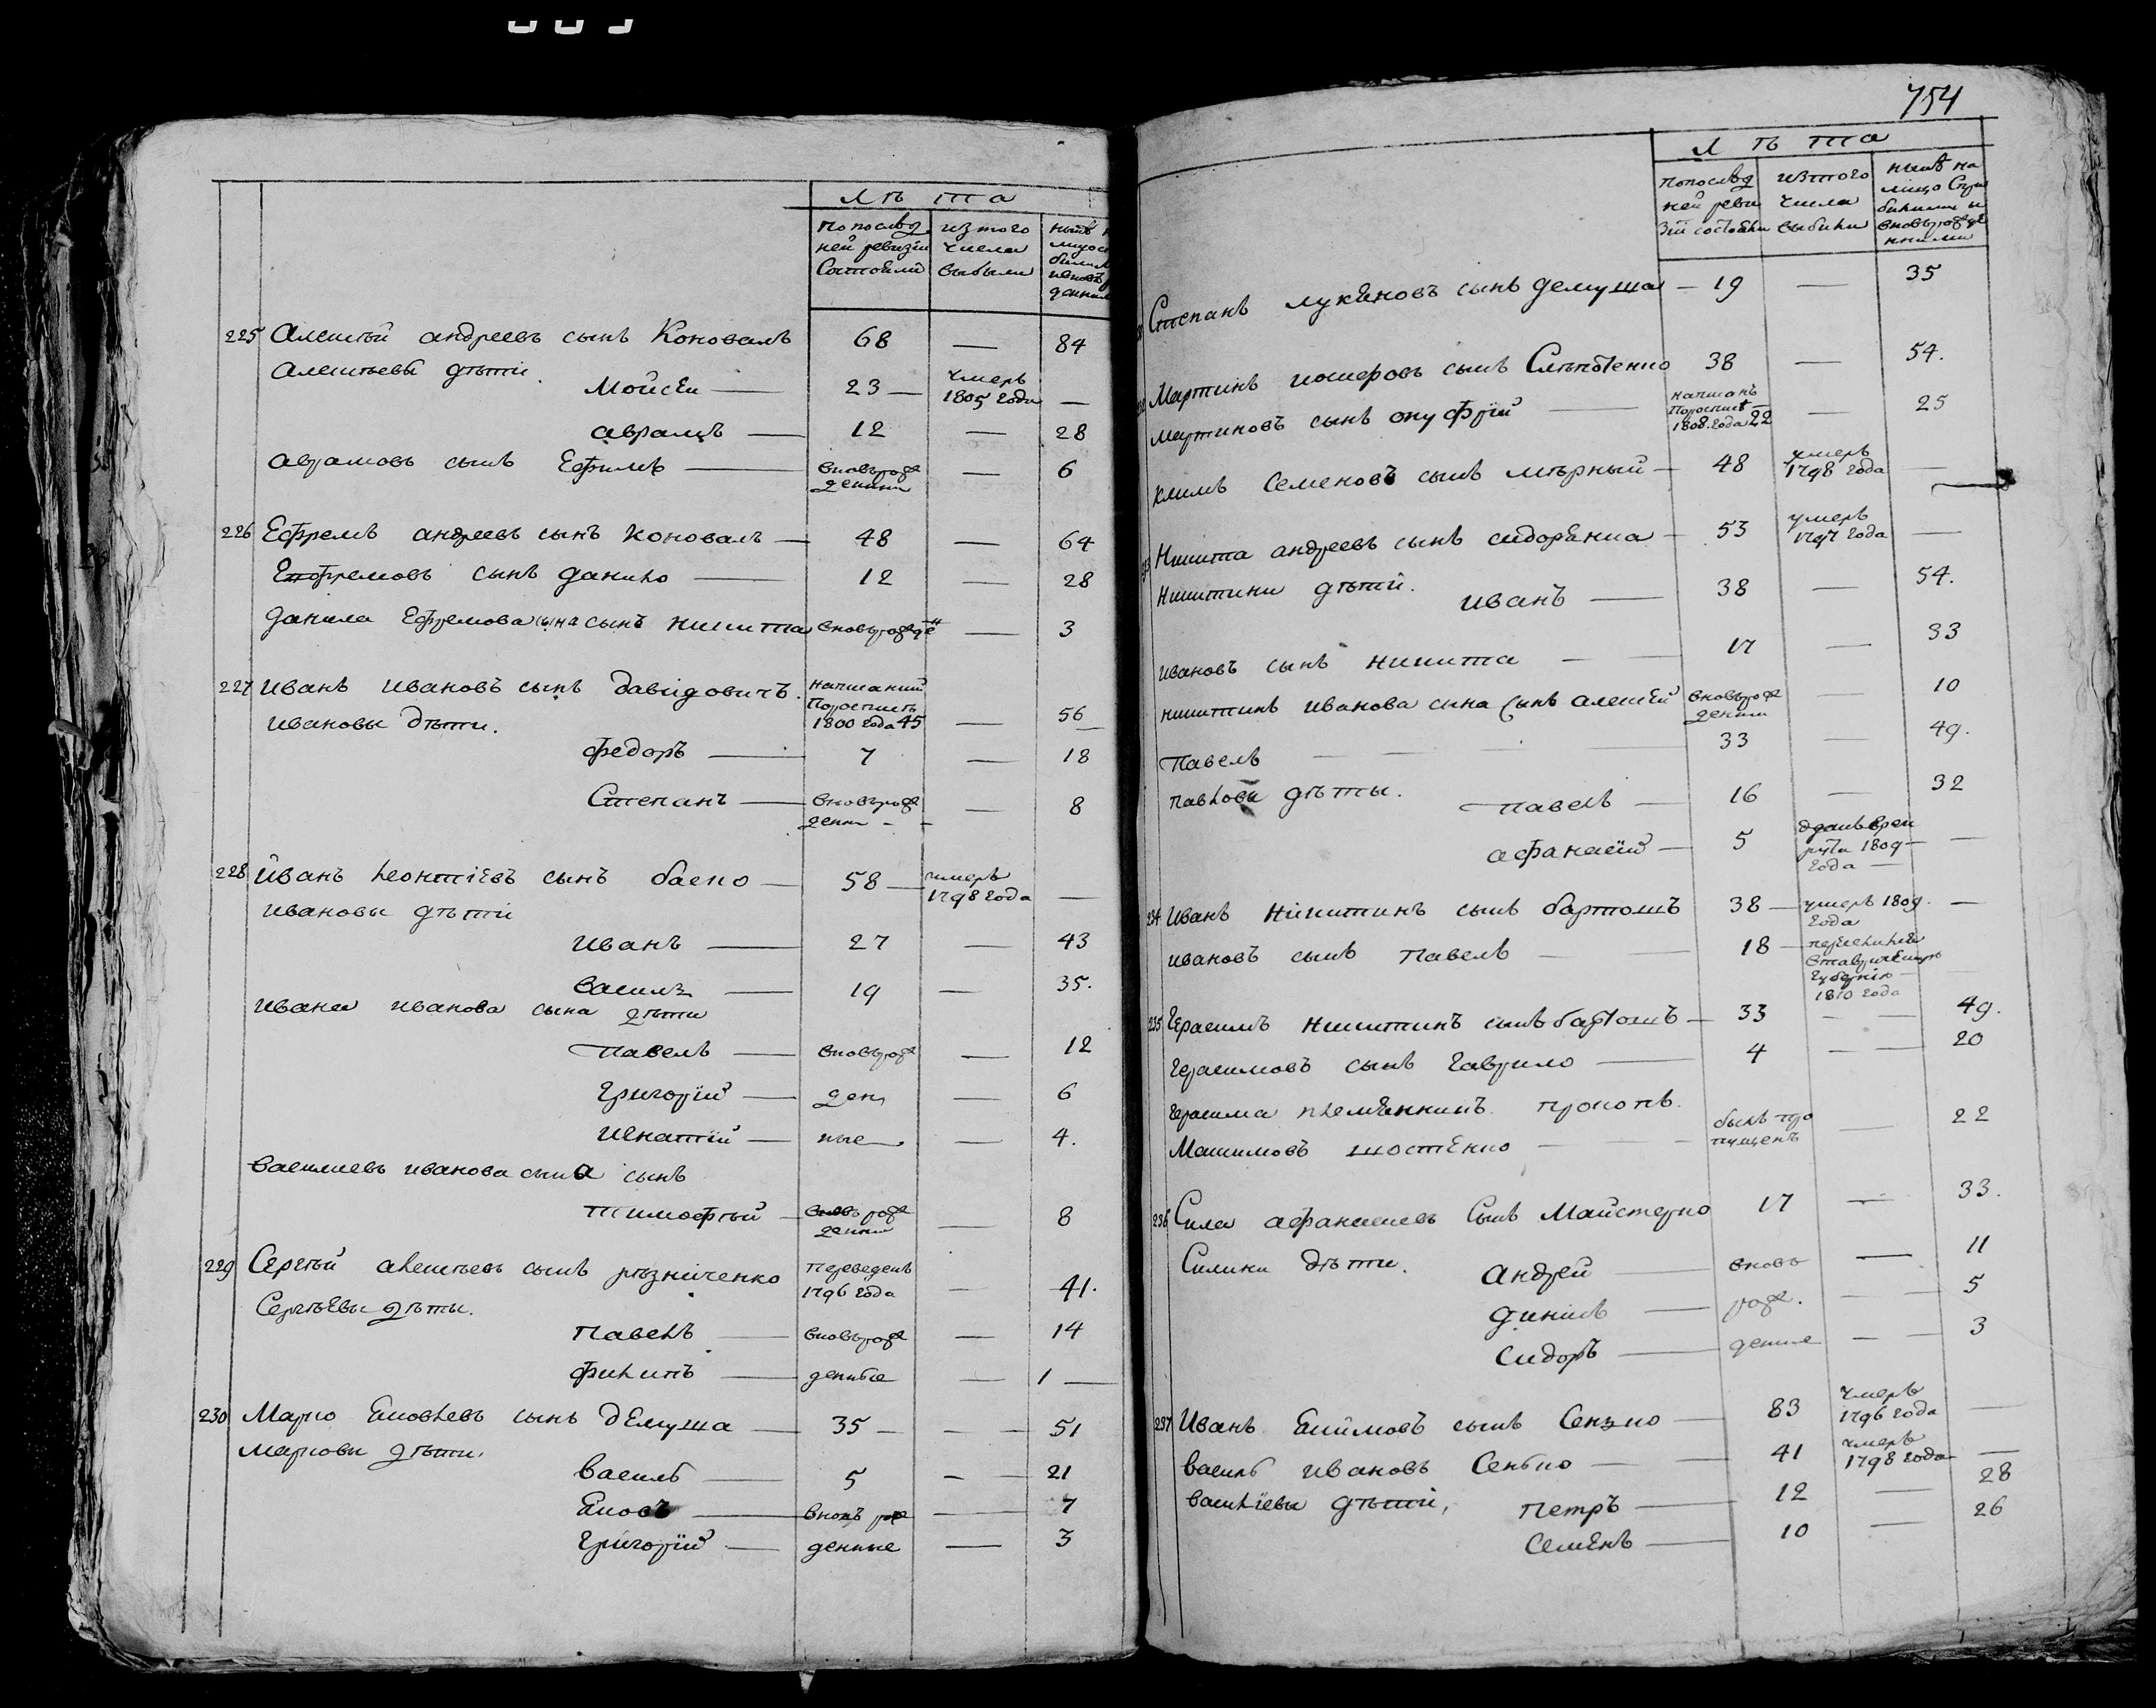 754
лѣта
по послѣд
ней ревизіи
Состояли
изтого
числа
выбыли
225 Алексѣй андреевъ сынъ Коновалъ 68 — 84
Алексѣевы дѣти
Мойсеи — 23 — умеръ 1805 года —
аврамъ — 12 — 28
аврамовъ сынъ Ефимъ — вновьрож денни — 6
226 Ефремъ андреевъ сынъ коновалъ — 48 — 64
Ефремовъ сынъ данило — 12 — 28
данила Ефремова сына сынъ никита вновьрожден — 3
227 иванъ ивановъ сынъ давидовичъ написаний 1800 года 45 — 56
ивановы дѣти.
федоръ — 7 — 18
Степанъ — вновьрож денн — 8
228 иванъ леонтіевъ сынъ 58 — умеръ 1798 года —
ивановы дѣти
иванъ — 27 — 43
василь — 19 — 35.
ивана иванова сына дѣти
павелъ — вновьрож — 12
григорїй — ден — 6
игнатїй — ные — 4.
василиевъ иванова сына сынъ
тимофѣй — вновьрож денни — 8
229 Сергѣй алексѣевъ сынъ рѣзниченко переведенъ 1796 года — 41.
Сергѣевы дѣты.
павелъ — вновьрож — 14
филипъ — денные — 1 —
230 Марко Яковлевъ сынъ демуша — 35 — — 51
Марковы дѣти.
василь — 5 — 21
Яковъ — вновь рож — 7
григорїй — денные — 3
лѣта
по послѣд
ней реви
зіи состояли
изтого
числа
выбыли
нынѣ на
лицо
Степанъ лукяновъ сынъ демуша — 19 — 35
Мартинъ сынъ 38 — 54.
мартиновъ сынъ онуфрїй — написанъ 1808. года 22 — 25
климъ Семеновъ сынъ мѣрный — 48 умеръ 1798 года —
Никита андреевъ сынъ сидоренко — 53 умеръ 1797 года —
никитини дѣти.
иванъ — 38 — 54.
ивановъ сынъ никита — 17 — 33
никитинъ иванова сына сынъ алексѣй вновьрож денни — 10
павелъ — 33 — 49.
павловы дѣты.
павелъ — 16 — 32
афанасїй — 5 1809 года —
234 иванъ никитинъ сынъ бартошъ 38 — умеръ 1809. года —
ивановъ сынъ павелъ — 18 — губернію 1810 года
235 Герасимъ никитинъ сынъ бартошъ — 33 — 49.
герасимовъ сынъ гаврило — 4 — 20
герасима племенникъ прокопъ
Макимовъ шостенко — былъ про пущенъ — 22
236 Сила афанасиевъ Сынъ Майстерко 17 — 33.
Силини дѣти.
андрей — вновь — 11
— рож. — 5
Сидоръ — денние — 3
237 Иванъ Якимовъ сынъ Сенько — 83 умеръ 1796 года —
василь ивановъ Сенько — 41 умеръ 1798 года —
василїевы дѣти,
петръ — 12 — 28
Семенъ — 10 — 26